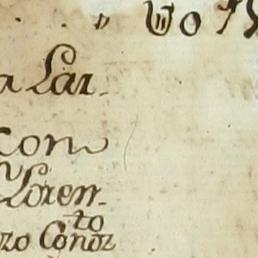 Uo
a Lar-
con
Loren-
to
zo Conoz